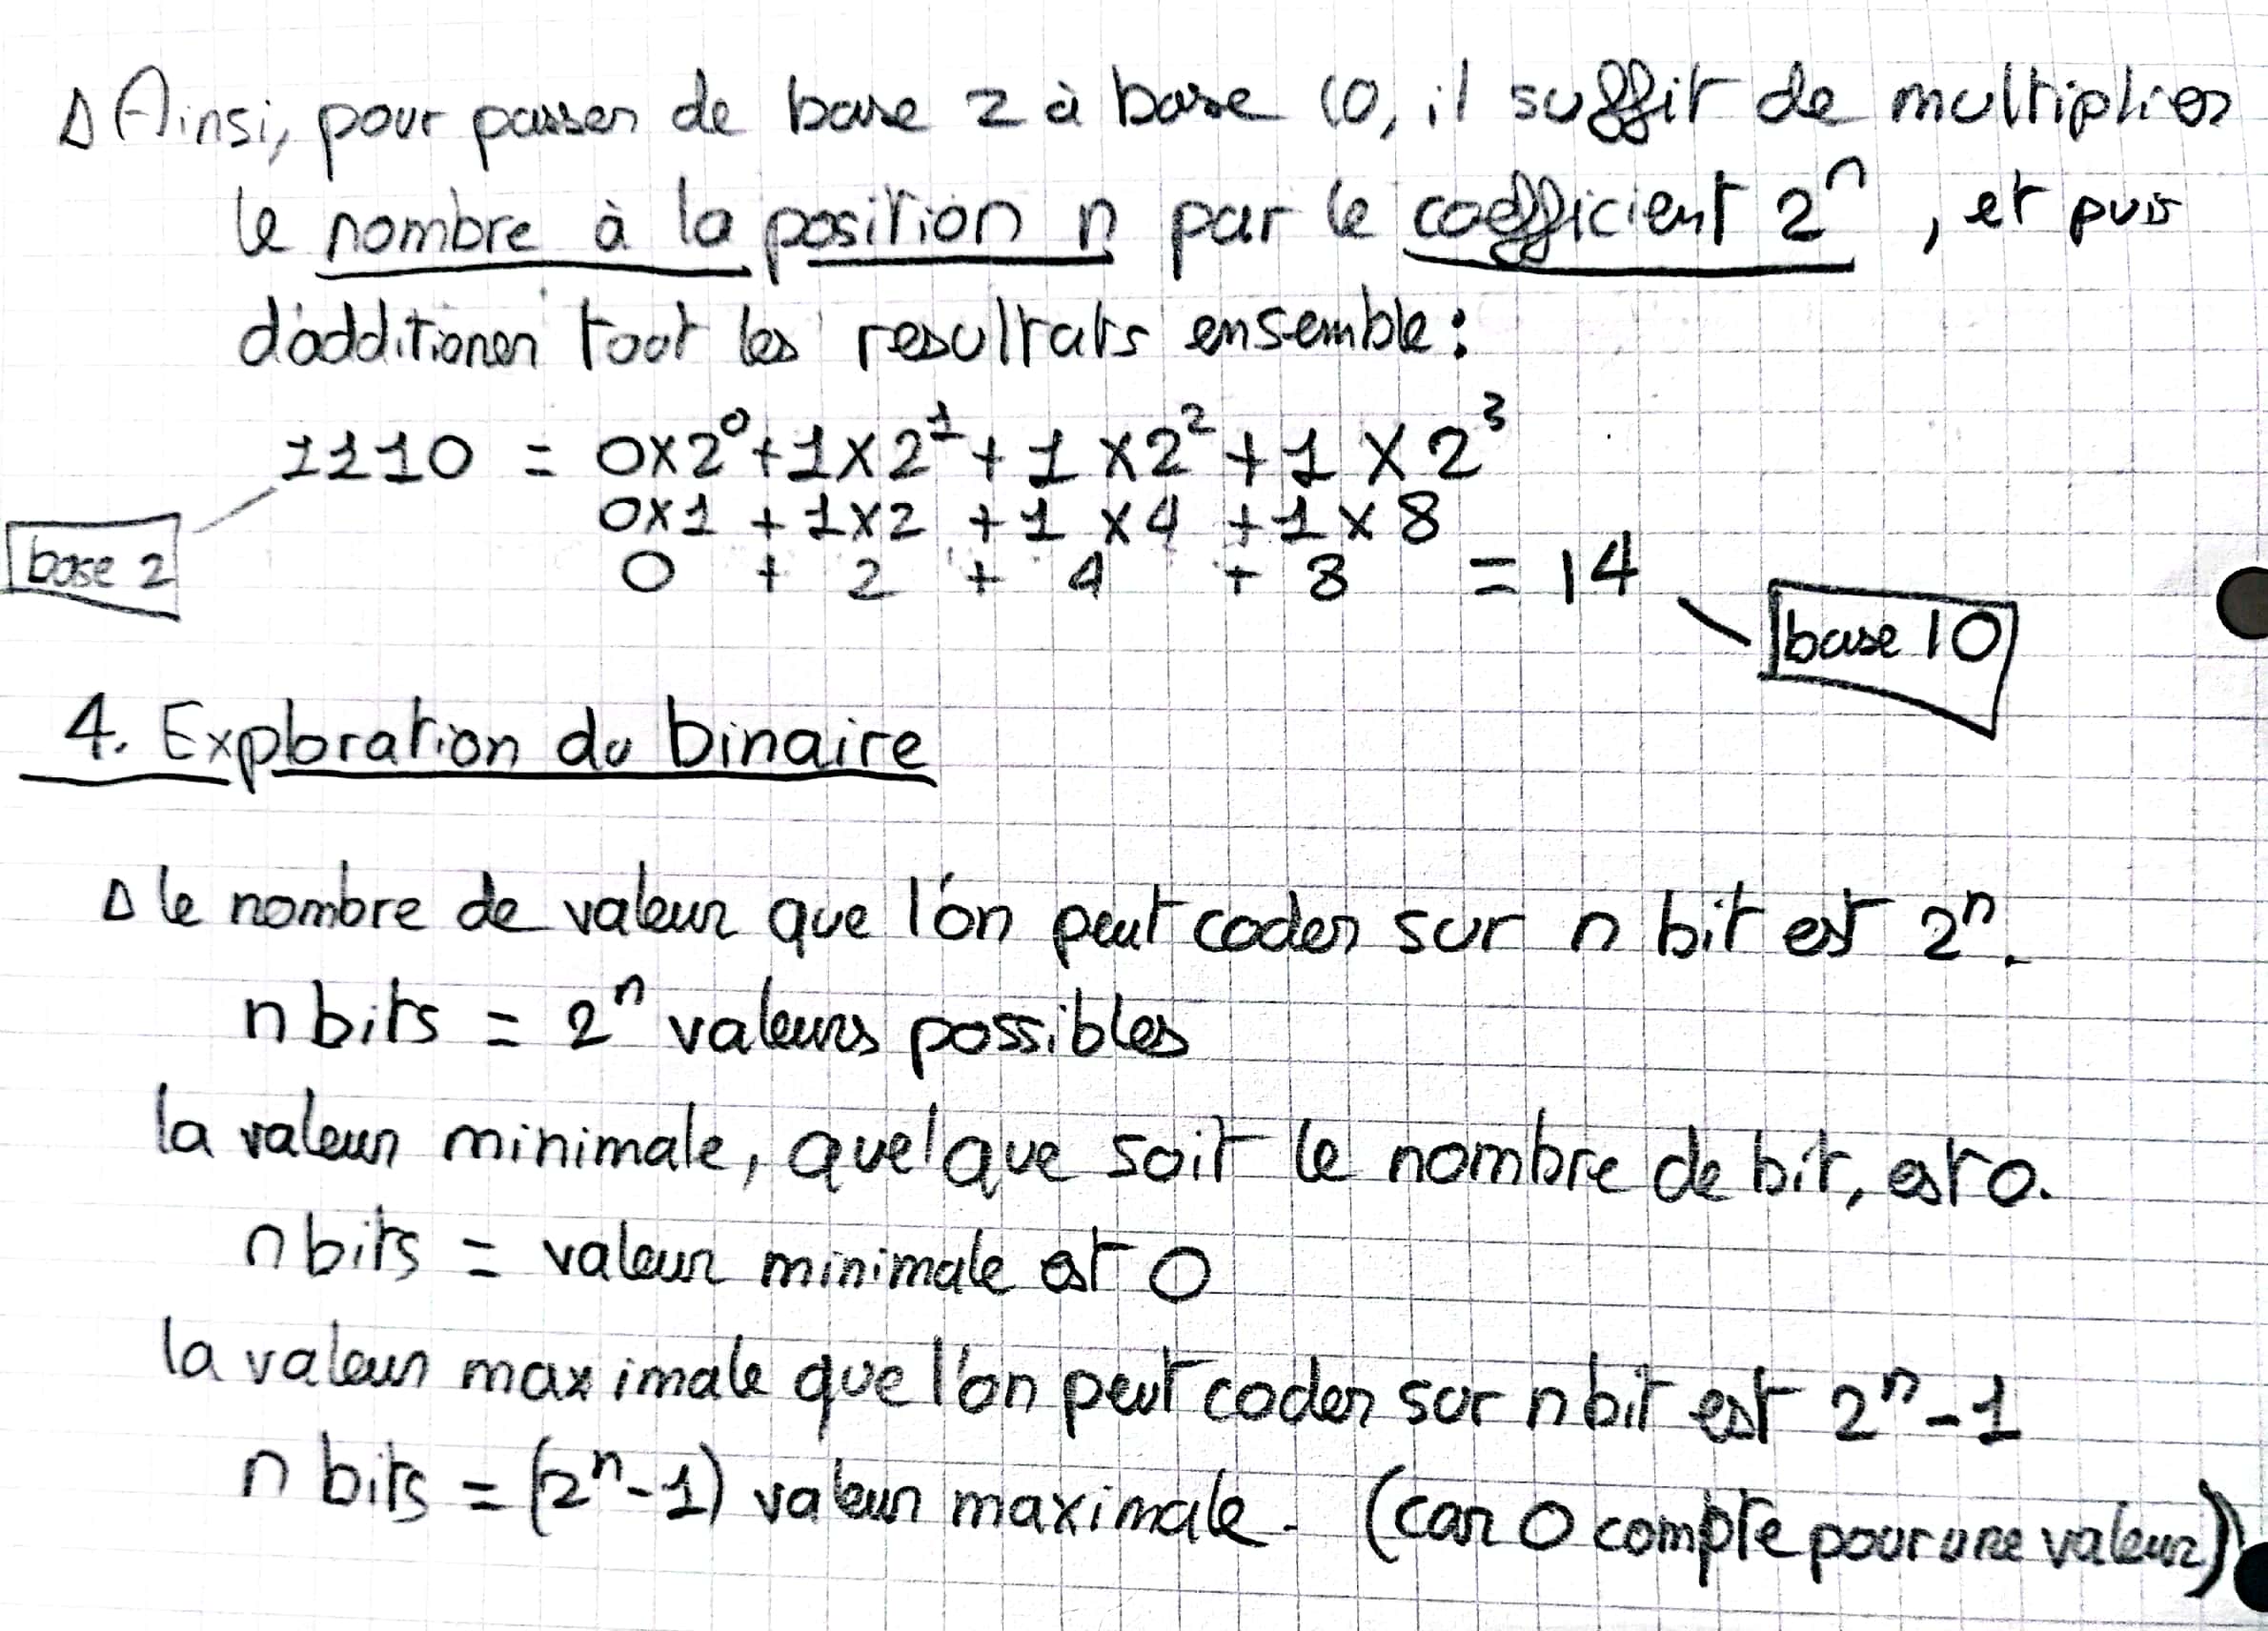 Δ Ainsi, pour passer de base 2 à base 10, il suffit de multiplier
le nombre à la position n par le coefficient 2ⁿ, et puis
d'additioner tout les resultats ensemble:
1110 = 0×2⁰+1×2¹+1×2²+1×2³
0×1 + 1×2 + 1×4 + 1×8
base 2
0 + 2 + 4 + 8 = 14
base 10
4. Exploration du binaire
Δ le nombre de valeur que l'on peut coder sur n bit est 2ⁿ.
n bits = 2ⁿ valeurs possibles
la valeur minimale, quelque soit le nombre de bit, est 0.
n bits = valeur minimale est 0
la valeur maximale que l'on peut coder sur n bit est 2ⁿ-1
n bits = (2ⁿ-1) valeur maximale. (car 0 compte pour une valeur)